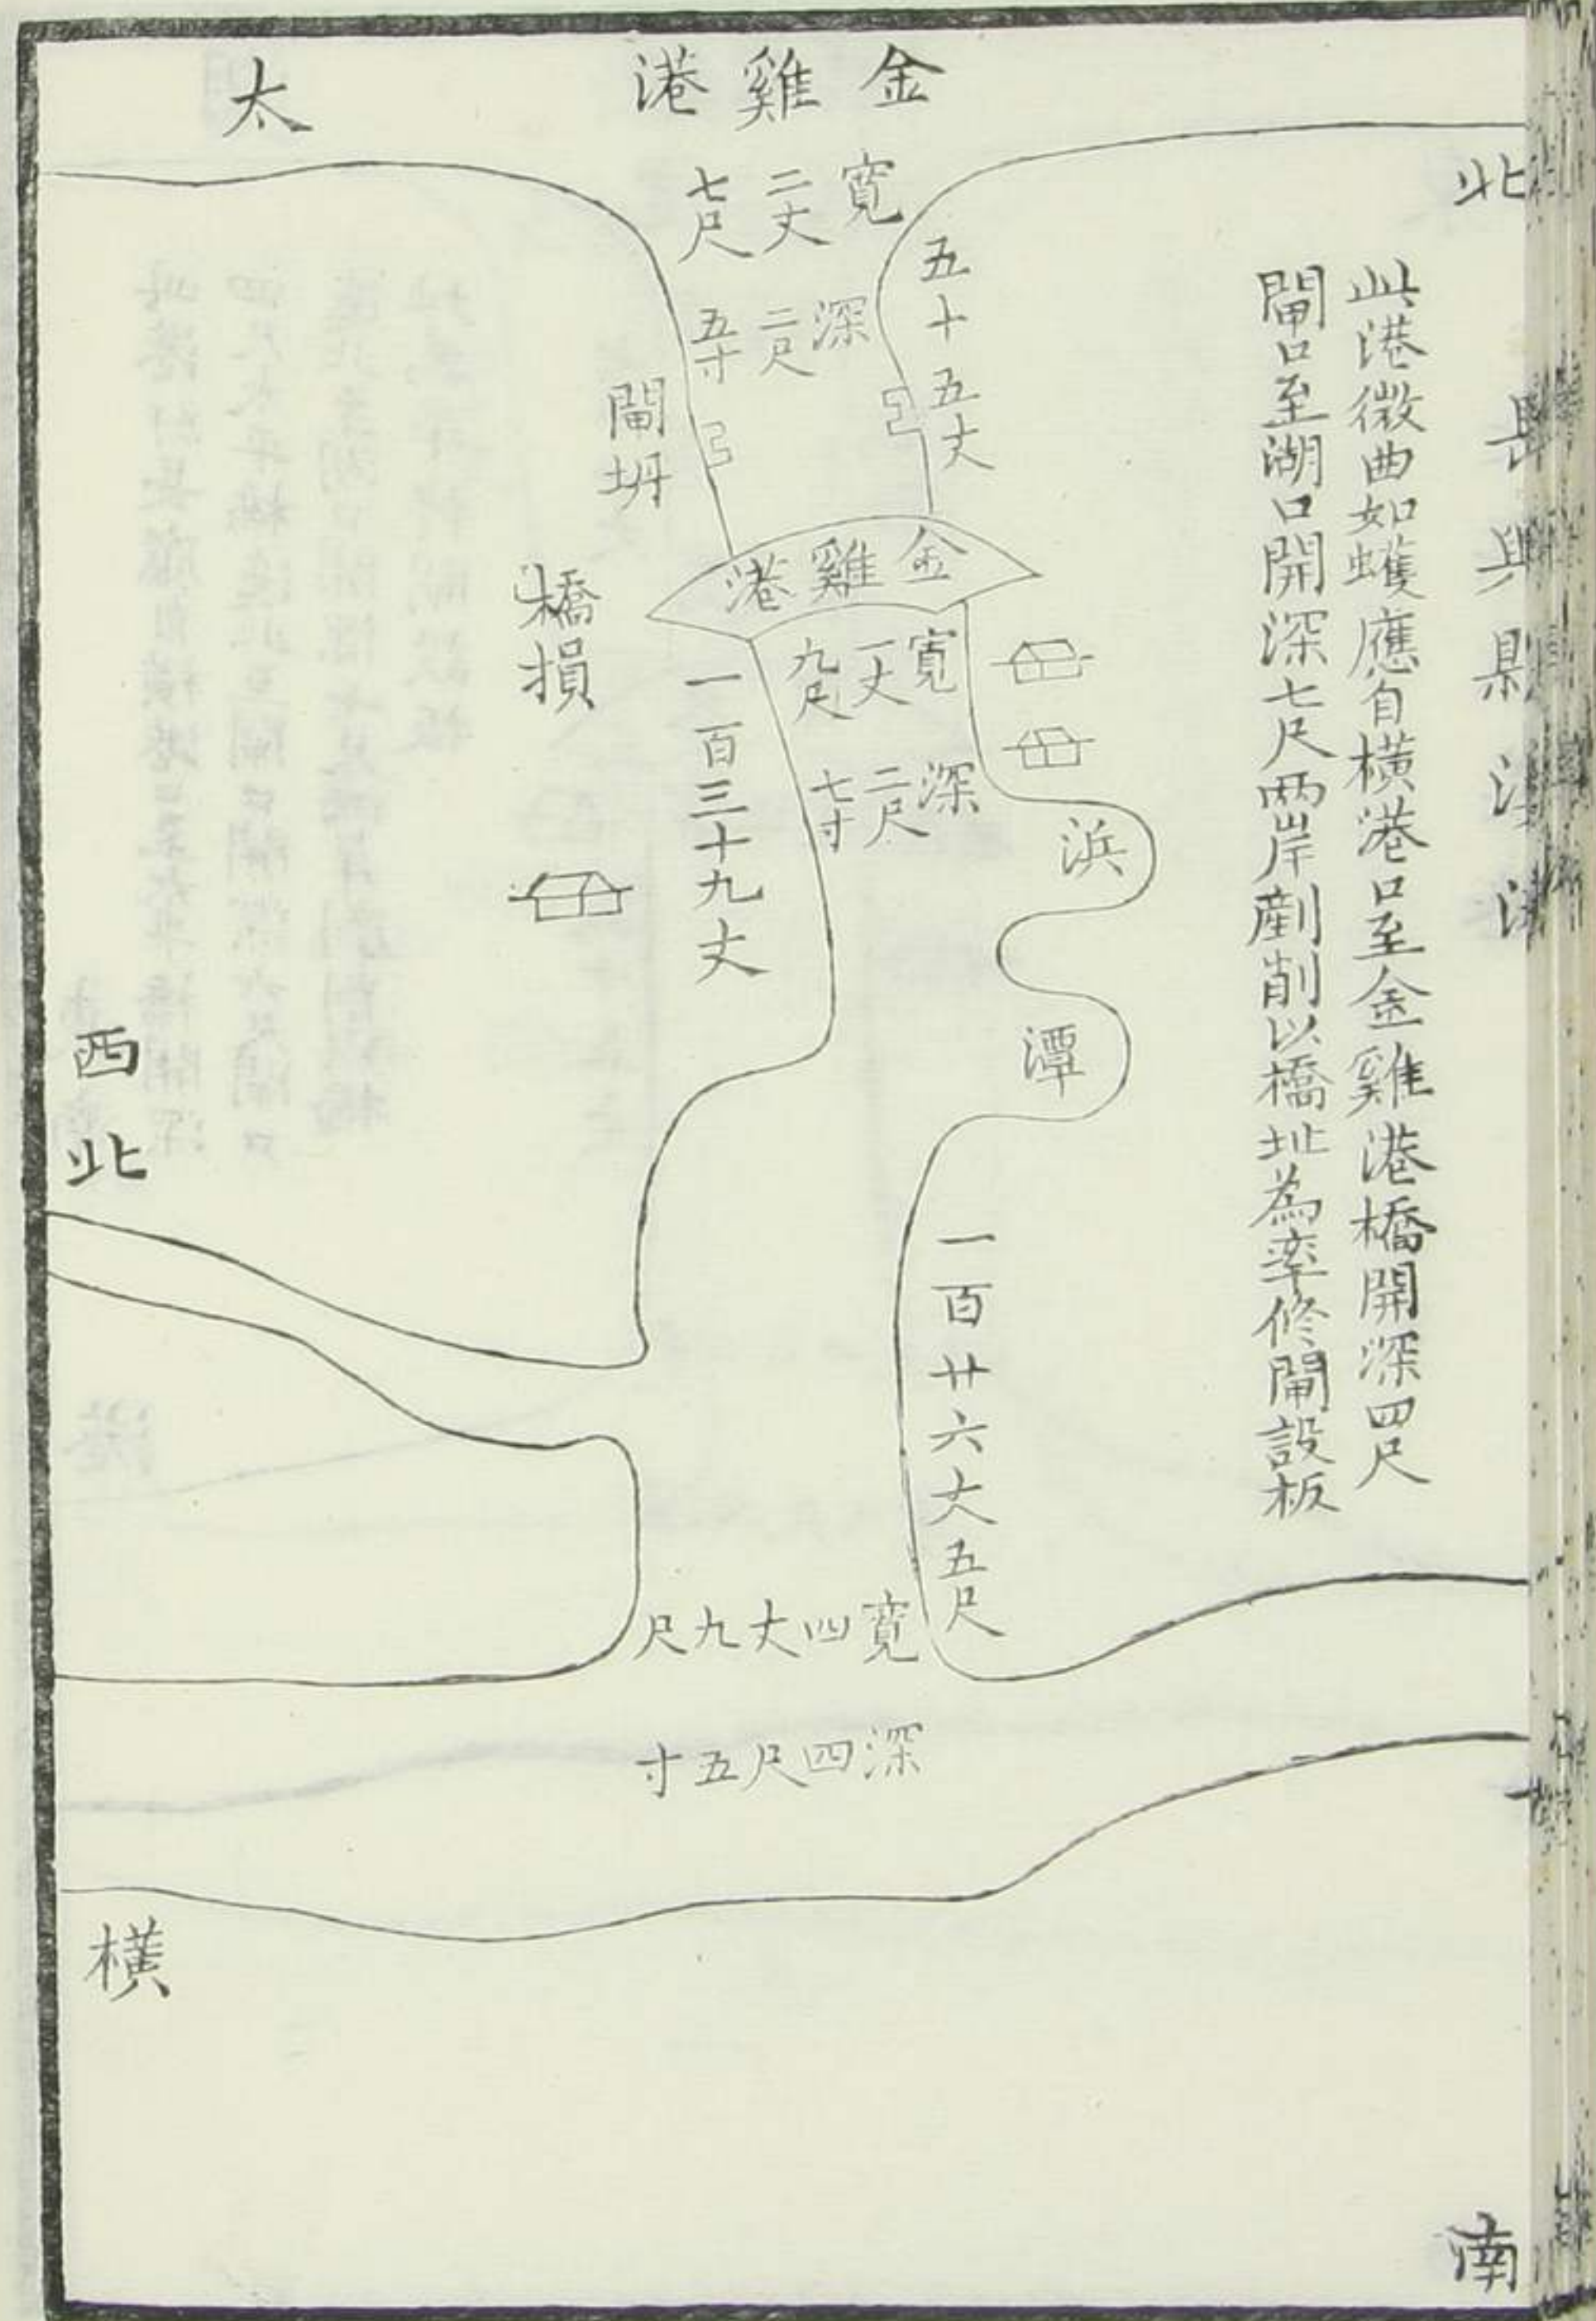 金雞港
太
北
此港微曲如蠖應自橫港口至金雞港橋開深四尺
閘口至湖口開深七尺兩岸剷削以橋址為率修閘設板
寬二丈七尺
深二尺五寸
五十五丈
閘坍
金雞港
橋損
寬一丈九尺
深二尺七寸
一百三十九丈
浜
潭
西北
一百廿六丈五尺
寬四丈九尺
深四尺五寸
橫
南